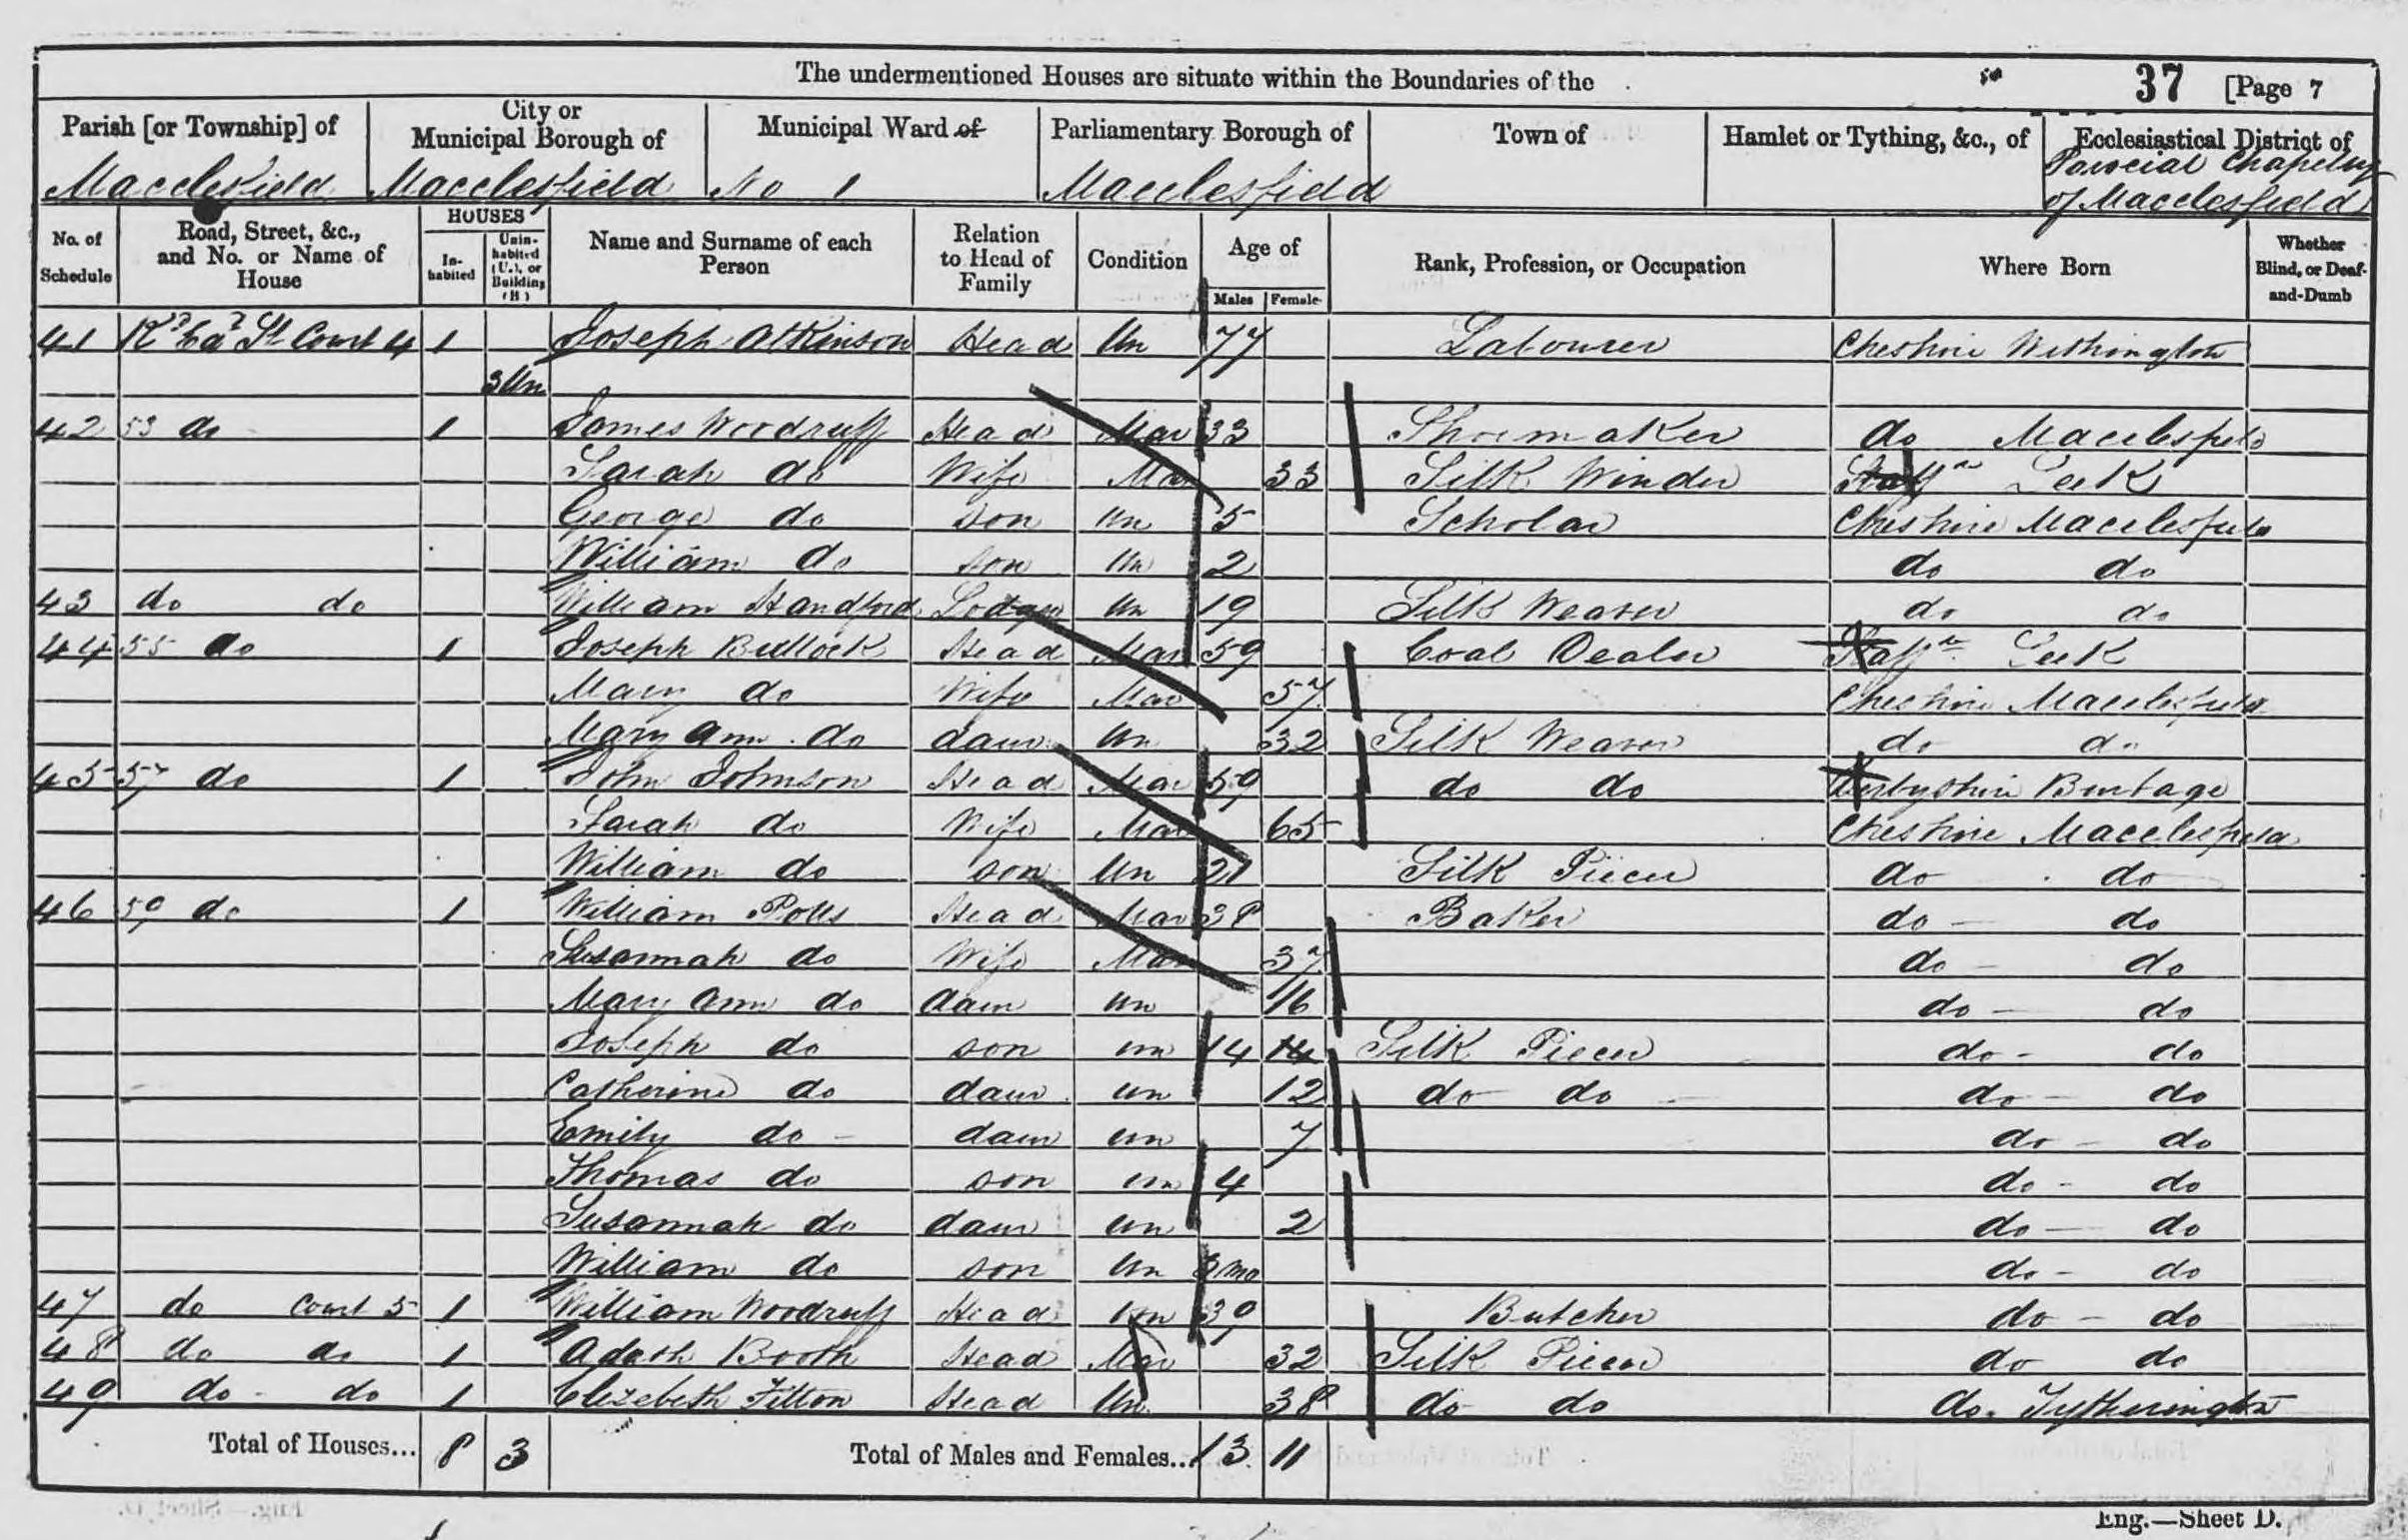 The undermentioned Houses are situate within the Boundaries of the 37 [Page 7
Parish [or Township] of City or Municipal Borough of Municipal Ward of Parliamentary Borough of Town of Hamlet or Tything, &c., of Ecclesiastical District of
Macclesfield Macclesfield No 1 Macclesfield Parocial Chapelry of Macclesfield
No. of Schedule Road, Street, &c., and No. or Name of House HOUSES In-habited Unin-habited (U.), or Building (B) Name and Surname of each Person Relation to Head of Family Condition Age of Males Female Rank, Profession, or Occupation Where Born Whether Blind, or Deaf-and-Dumb
41 St Court 4 1 Joseph Atkinson Head Un 77 Labourer Cheshire Withington
3 Un
42 53 do 1 James Woodruff Head Mar 33 Shoemaker do Macclesfield
Sarah do Wife Mar 33 Silk Winder Staff Leek
George do son Un 5 Scholar Cheshire Macclesfield
William do son Un 2 do do
43 do do William Handford Lodger Un 19 Silk Weaver do do
44 55 do 1 Joseph Bullock Head Mar 59 Coal Dealer Staff Leek
Mary do Wife Mar 57 Cheshire Macclesfield
Mary Ann do daur Un 32 Silk Weaver do do
45 57 do 1 John Johnson Head Mar 59 do do Derbyshire Burbage
Sarah do Wife Mar 65 Cheshire Macclesfield
William do son Un 21 Silk Piecer do do
46 59 do 1 William Potts Head Mar 38 Baker do do
Susannah do Wife Mar 37 do do
Mary Ann do daur un 16 do do
Joseph do son un 14 14 Silk Piecer do do
Catherine do daur un 12 do do do do
Emily do daur un 7 do do
Thomas do son un 4 do do
Susannah do daur un 2 do do
William do son Un 3 mo do do
47 do Court 5 1 William Woodruff Head Un 39 Butcher do do
48 do do 1 Booth Head Mar 32 Silk Piecer do do
49 do do 1 Elizebeth Fitton Head Un 38 do do do Tytherington
Total of Houses... 8 3 Total of Males and Females... 13 11
Eng.—Sheet D.